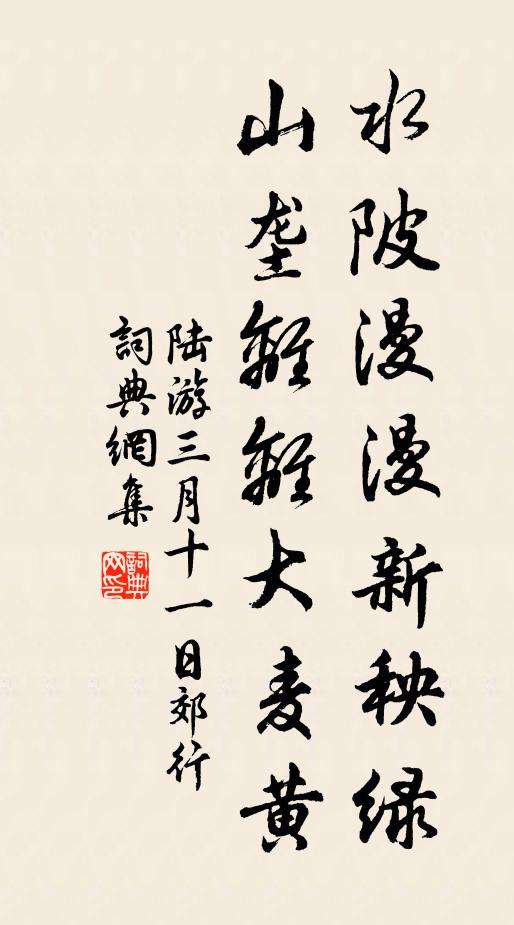 水陂漫漫新秧绿
山垄離離大麦黄
陆游三月十一日郊行
詞典網集
詞典网印